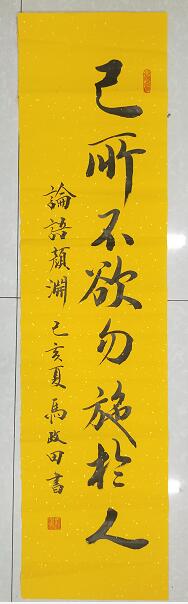 己所不欲勿施於人
論語顏淵 己亥夏 馬政田書